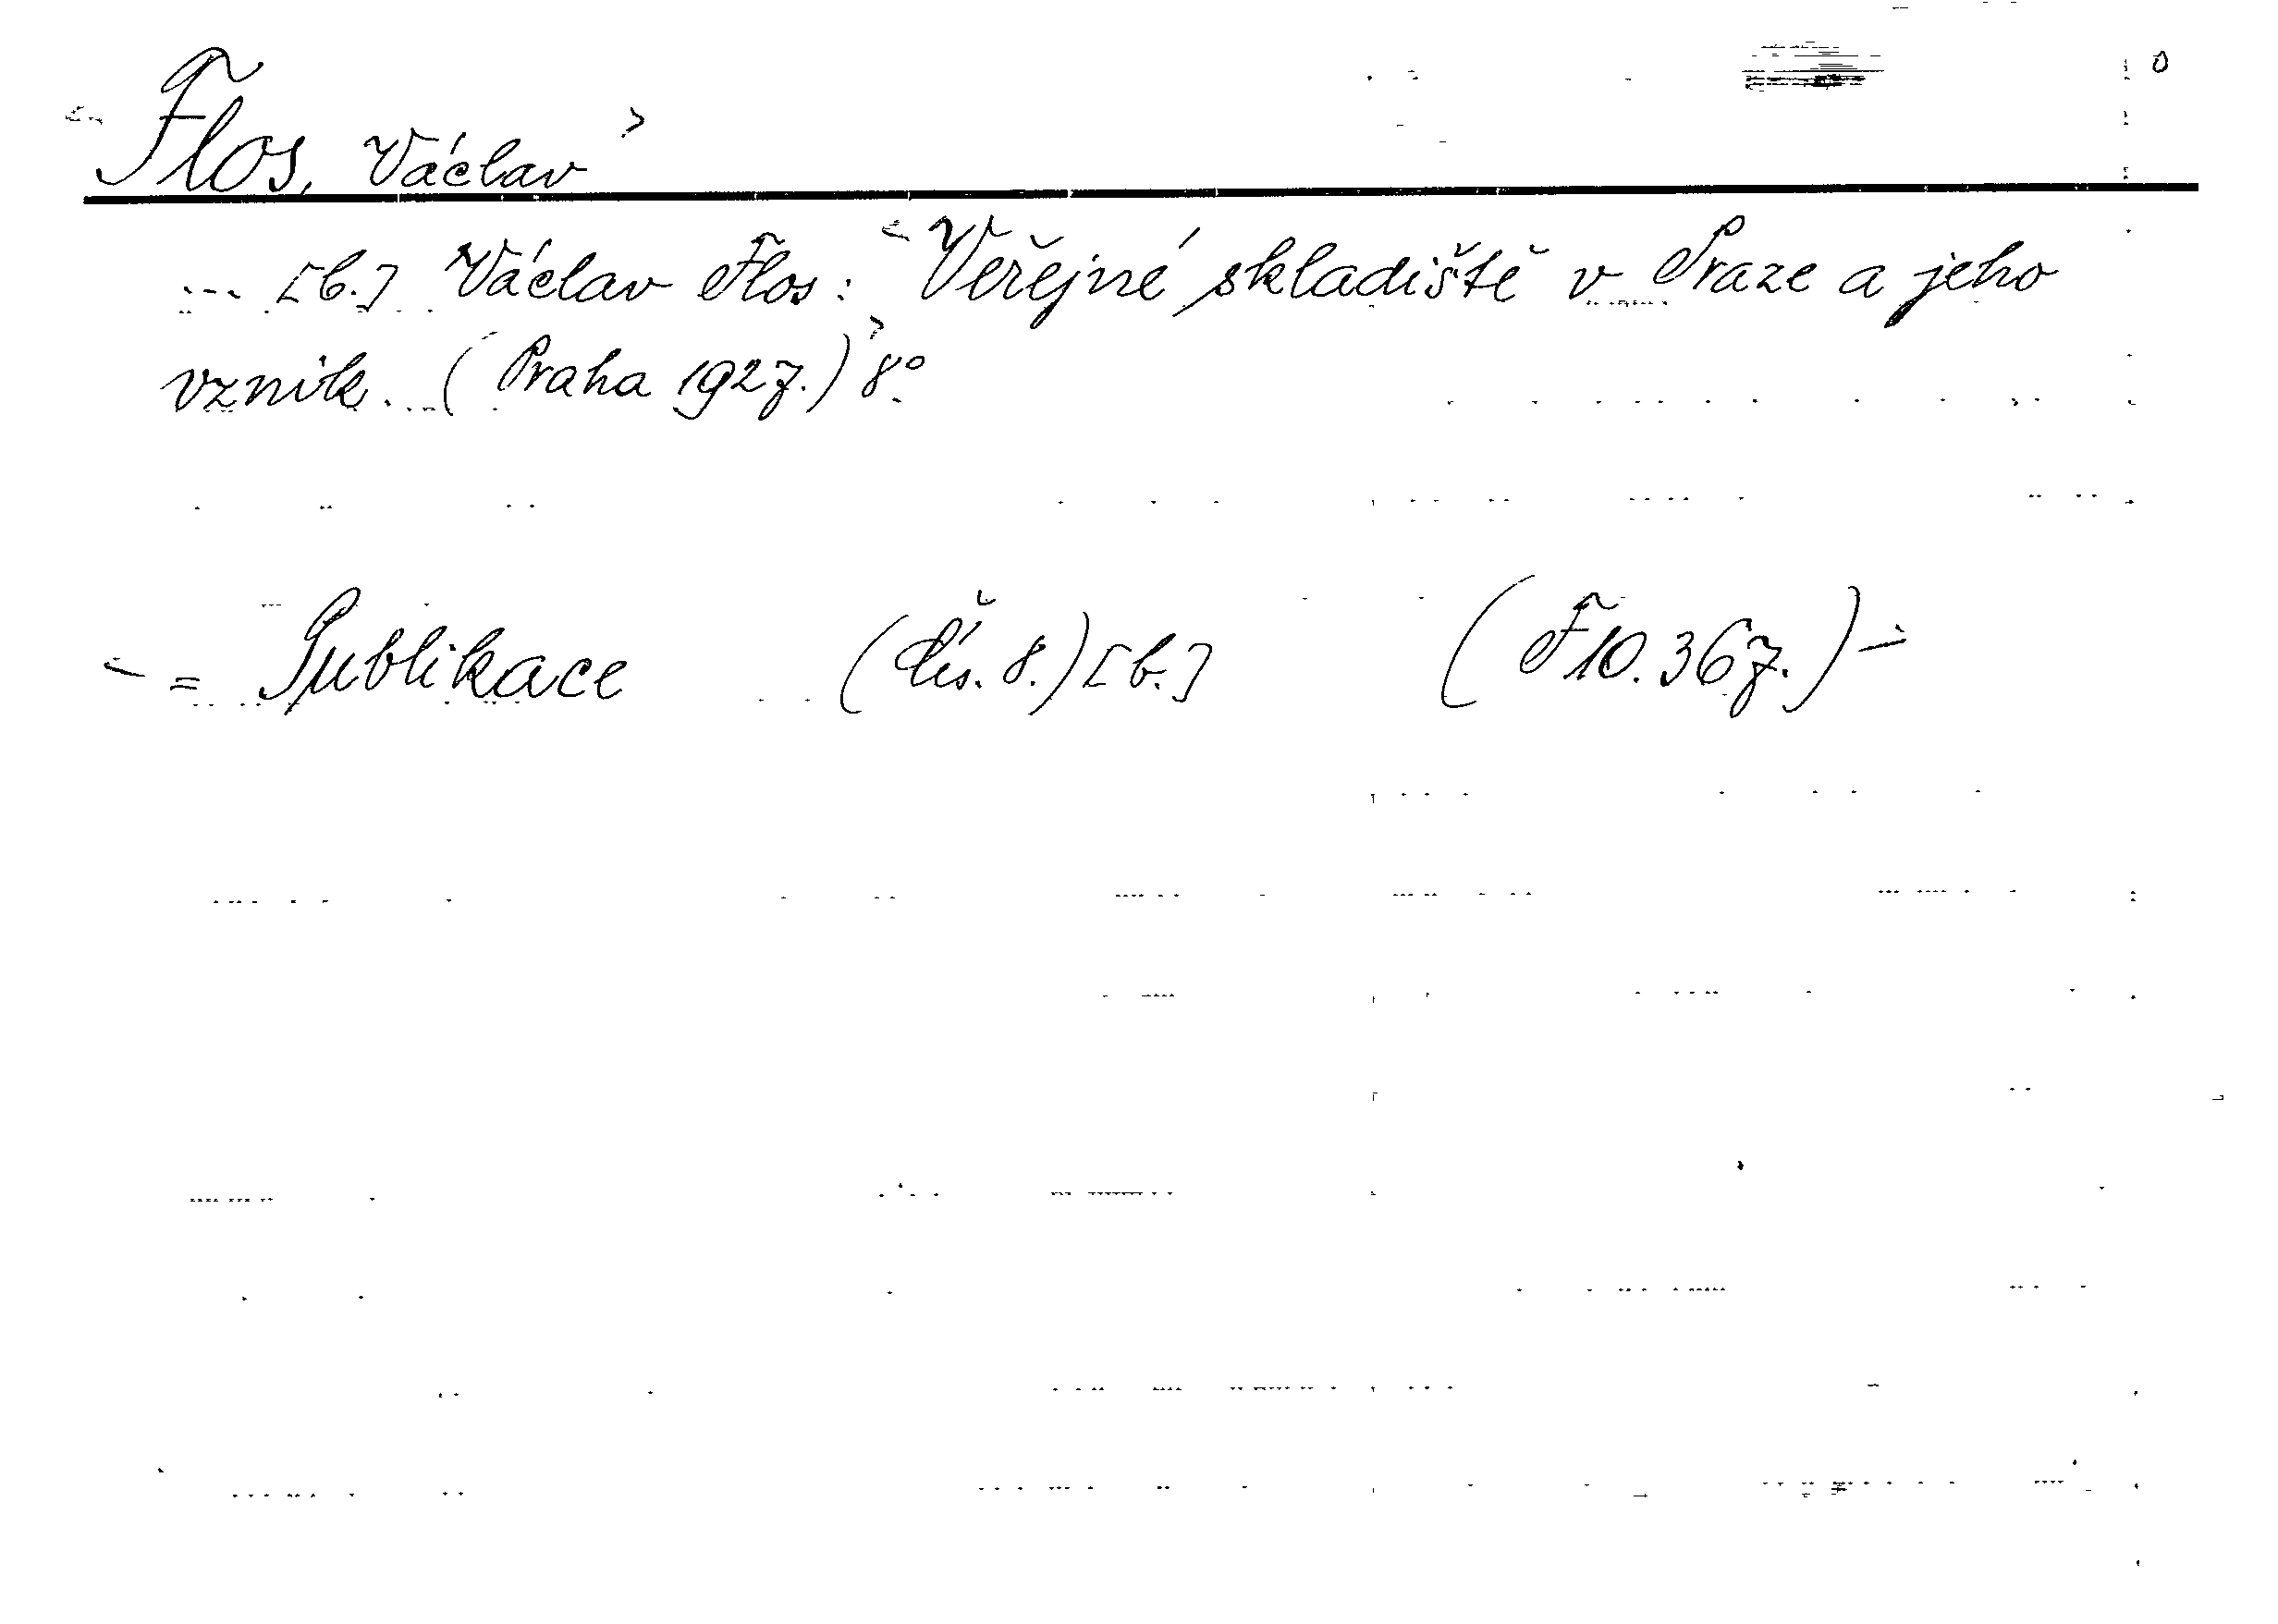 <Flos, Václav>
... [b.] Václav Flos: <Veřejné skladiště v Praze a jeho
vznik. (Praha 1927.)> 8°.
= Publikace (čís. 8.) [b.] (F 10.367.) -